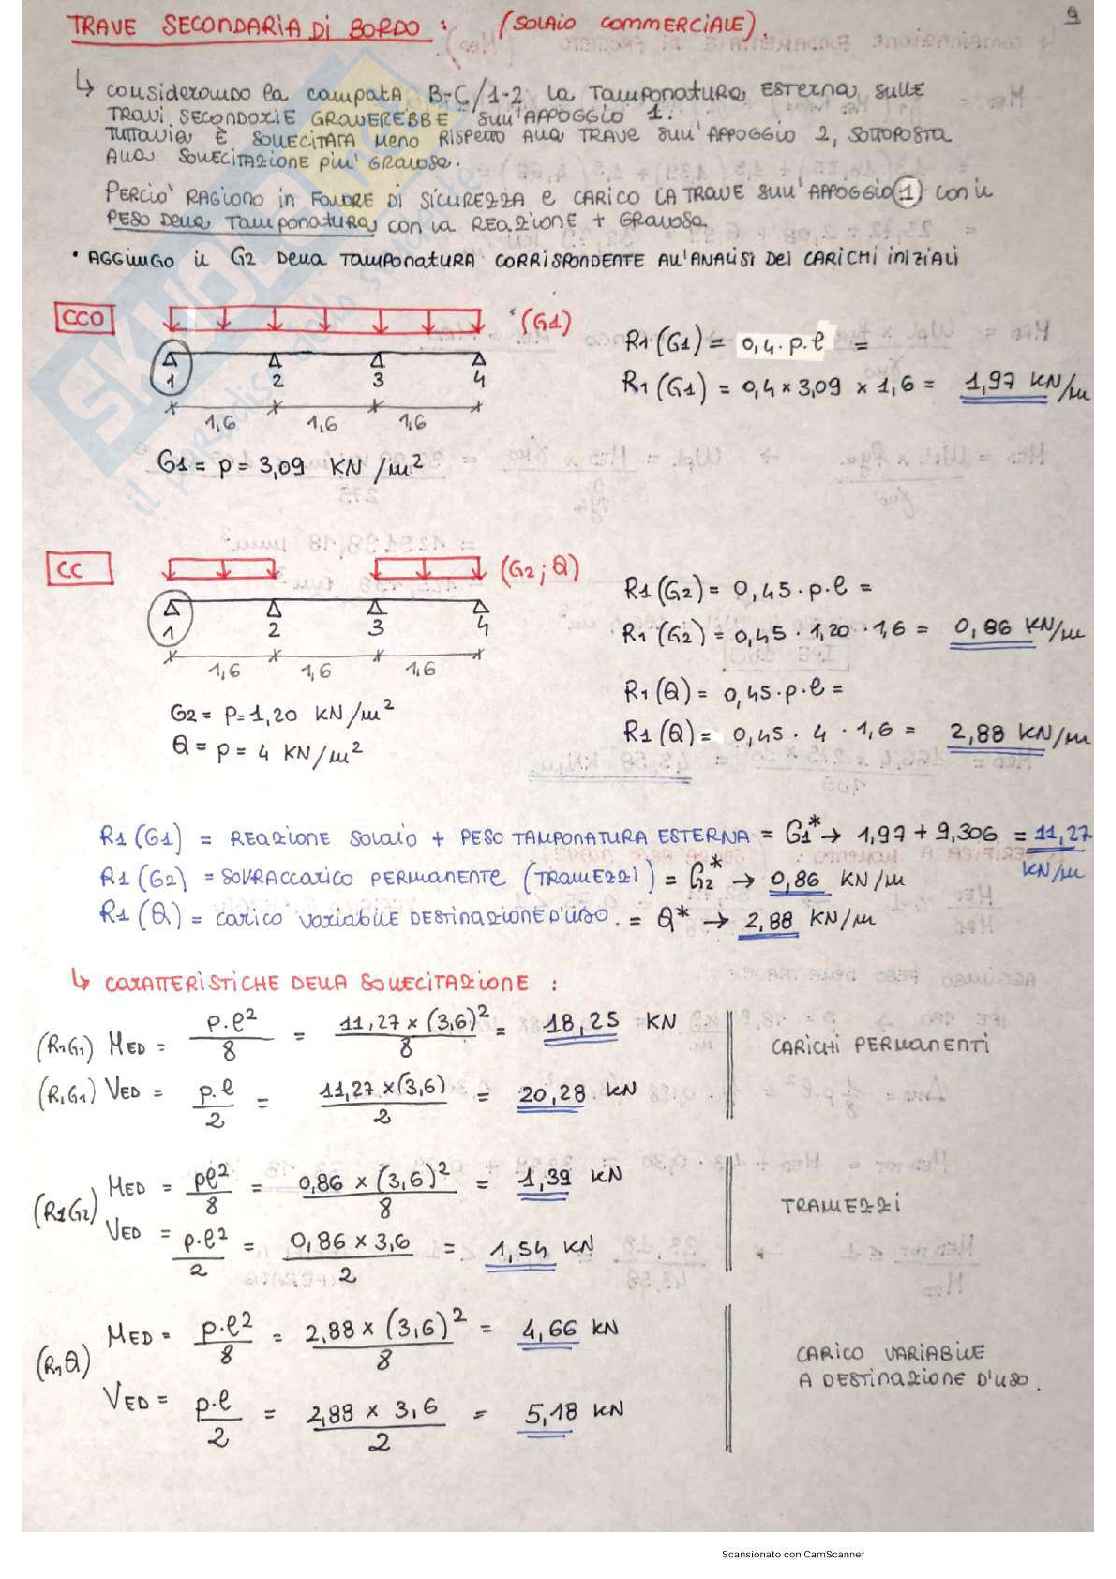 9
TRAVE SECONDARIA DI BORDO : (SOLAIO COMMERCIALE).
↳ considerando la campata B-C/1-2 la TAMPONATURA ESTERNA SULLE
TRAVI SECONDARIE GRAVEREBBE SULL'APPOGGIO 1.
TUTTAVIA È SOLLECITATA MENO RISPETTO ALLA TRAVE SULL'APPOGGIO 2, SOTTOPOSTA
ALLA SOLLECITAZIONE PIU' GRAVOSA.
PERCIO' RAGIONO in FAVORE DI SICUREZZA e CARICO LA TRAVE SULL'APPOGGIO 1 con il
PESO Della TAMPONATURA con la REAZIONE + GRAVOSA.
• AGGIUNGO il G2 Della TAMPONATURA CORRISPONDENTE ALL'ANALISI DEI CARICHI INIZIALI
CCO
(G1)
1 2 3 4
1,6 1,6 1,6
G1 = p = 3,09 KN/m²
R1(G1) = 0,4 · p · l =
R1(G1) = 0,4 × 3,09 × 1,6 = 1,97 KN/m
CC
(G2; Q)
1 2 3 4
1,6 1,6 1,6
G2 = p = 1,20 KN/m²
Q = p = 4 KN/m²
R1(G2) = 0,45 · p · l =
R1(G2) = 0,45 · 1,20 · 1,6 = 0,86 KN/m
R1(Q) = 0,45 · p · l =
R1(Q) = 0,45 · 4 · 1,6 = 2,88 KN/m
R1(G1) = REAZIONE SOLAIO + PESO TAMPONATURA ESTERNA = G1* → 1,97 + 9,306 = 11,27 KN/m
R1(G2) = SOVRACCARICO PERMANENTE (TRAMEZZI) = G2* → 0,86 KN/m
R1(Q) = carico variabile DESTINAZIONE D'USO. = Q* → 2,88 KN/m
↳ CARATTERISTICHE DELLA SOLLECITAZIONE :
(R1G1) MED = p·l²/8 = 11,27 × (3,6)²/8 = 18,25 KN
CARICHI PERMANENTI
(R1G1) VED = p·l/2 = 11,27 × (3,6)/2 = 20,28 KN
(R1G2) MED = pl²/8 = 0,86 × (3,6)²/8 = 1,39 KN
TRAMEZZI
VED = p·l²/2 = 0,86 × 3,6/2 = 1,54 KN
(R1Q) MED = p·l²/8 = 2,88 × (3,6)²/8 = 4,66 KN
CARICO VARIABILE
A DESTINAZIONE D'USO.
VED = p·l/2 = 2,88 × 3,6/2 = 5,18 KN
Scansionato con CamScanner